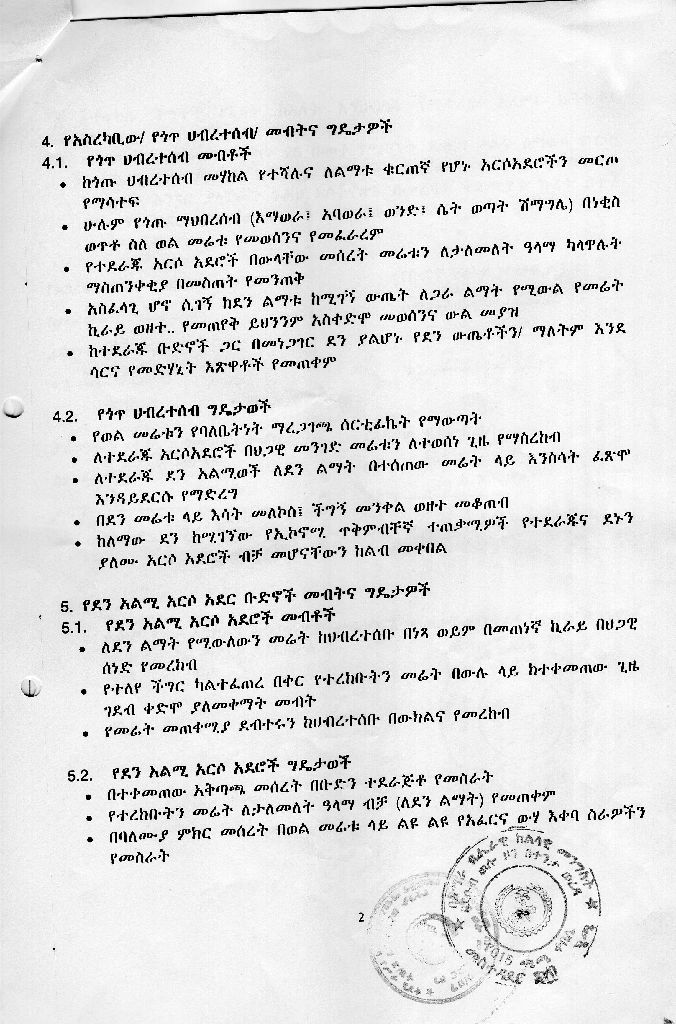 4. የአስረካቢው/ የጎጥ ህብረተሰብ/ መብትና ግዴታዎች
4.1. የጎጥ ህብረተሰብ መብቶች
• ከጎጡ ህብረተሰብ መሃከል የተሻሉና ለልማቱ ቁርጠኛ የሆኑ አርሶአደሮችን መርጦ
የማሳተፍ
• ሁሉም የጎጡ ማህበረሰብ (እማወራ፤ አባወራ፤ ወንድ፤ ሴት ወጣት ሽማግሌ) በነቂስ
ወጥቶ ስለ ወል መሬቱ የመወሰንና የመፈራረም
• የተደራጁ አርሶ አደሮች በውላቸው መሰረት መሬቱን ለታለመለት ዓላማ ካላዋሉት
ማስጠንቀቂያ በመስጠት የመንጠቅ
• አስፈላጊ ሆኖ ሲገኝ ከደን ልማቱ ከሚገኝ ውጤት ለጋራ ልማት የሚውል የመሬት
ኪራይ ወዘተ.. የመጠየቅ ይህንንም አስቀድሞ መወሰንና ውል መያዝ
• ከተደራጁ ቡድኖች ጋር በመነጋገር ደን ያልሆኑ የደን ውጤቶችን/ ማለትም እንደ
ሳርና የመድሃኒት እጽዋቶች የመጠቀም
4.2. የጎጥ ህብረተሰብ ግዴታወች
• የወል መሬቱን የባለቤትነት ማረጋገጫ ሰርቲፊኬት የማውጣት
• ለተደራጁ አርሶአደሮች በህጋዊ መንገድ መሬቱን ለተወሰነ ጊዜ የማስረከብ
• ለተደራጁ ደን አልሚወች ለደን ልማት በተሰጠው መሬት ላይ እንስሳት ፈጽሞ
እንዳይደርሱ የማድረግ
• በደን መሬቱ ላይ እሳት መለኮስ፤ ችግኝ መንቀል ወዘተ መቆጠብ
• ከለማው ደን ከሚገኘው የኢኮኖሚ ጥቅምብቸኛ ተጠቃሚዎች የተደራጁና ደኑን
ያለሙ አርሶ አደሮች ብቻ መሆናቸውን ከልብ መቀበል
5. የደን አልሚ አርሶ አደር ቡድኖች መብትና ግዴታዎች
5.1. የደን አልሚ አርሶ አደሮች መብቶች
• ለደን ልማት የሚውለውን መሬት ከህብረተሰቡ በነጻ ወይም በመጠነኛ ኪራይ በህጋዊ
ሰነድ የመረከብ
• የተለየ ችግር ካልተፈጠረ በቀር የተረከቡትን መሬት በውሉ ላይ ከተቀመጠው ጊዜ
ገደብ ቀድሞ ያለመቀማት መብት
• የመሬት መጠቀሚያ ደብተሩን ከህብረተሰቡ በውክልና የመረከብ
5.2. የደን አልሚ አርሶ አደሮች ግዴታወች
• በተቀመጠው አቅጣጫ መሰረት በቡድን ተደራጅቶ የመስራት
• የተረከቡትን መሬት ለታለመለት ዓላማ ብቻ (ለደን ልማት) የመጠቀም
• በባለሙያ ምክር መሰረት በወል መሬቱ ላይ ልዩ ልዩ የአፈርና ውሃ እቀባ ስራዎችን
የመስራት
2